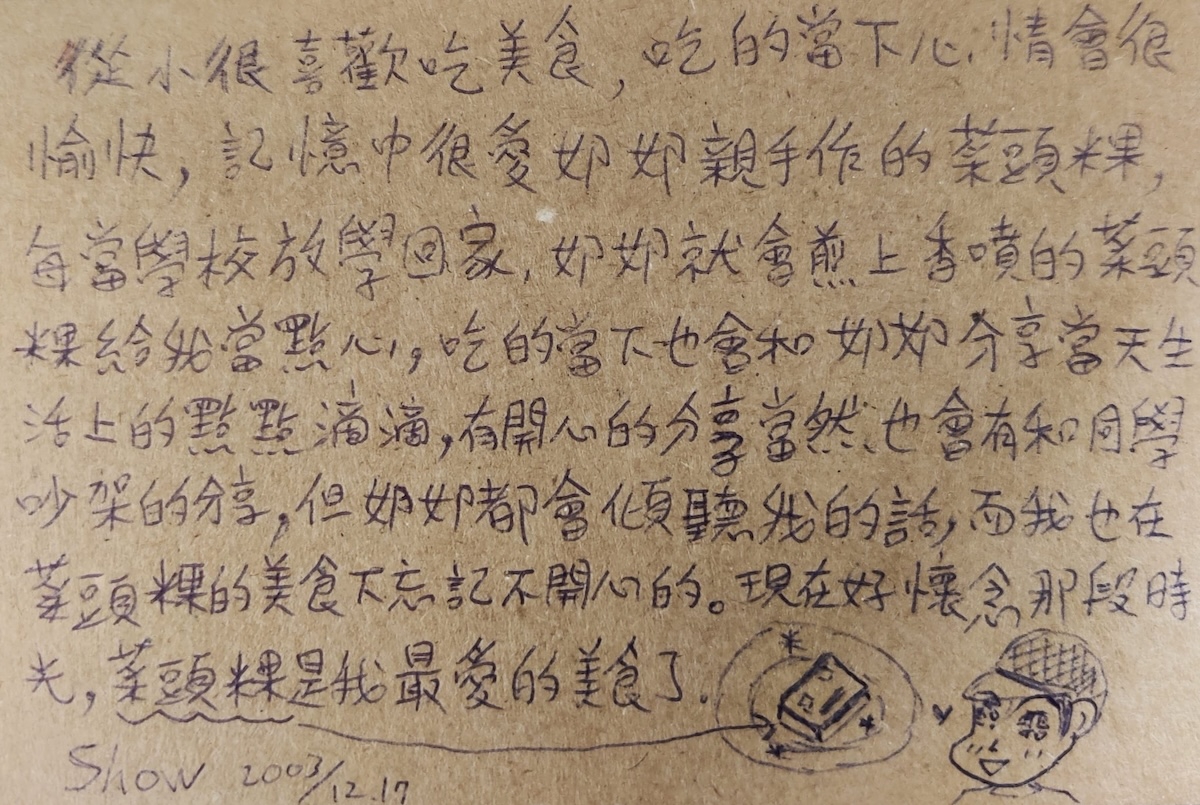 從小很喜歡吃美食，吃的當下心情會很
愉快，記憶中很愛奶奶親手作的菜頭粿，
每當學校放學回家，奶奶就會煎上香噴的菜頭
粿給我當點心，吃的當下也會和奶奶分享當天生
活上的點點滴滴，有開心的分享當然也會有和同學
吵架的分享，但奶奶都會傾聽我的話，而我也在
菜頭粿的美食下忘記不開心的。現在好懷念那段時
光，菜頭粿是我最愛的美食了.
Show 2003/12.17